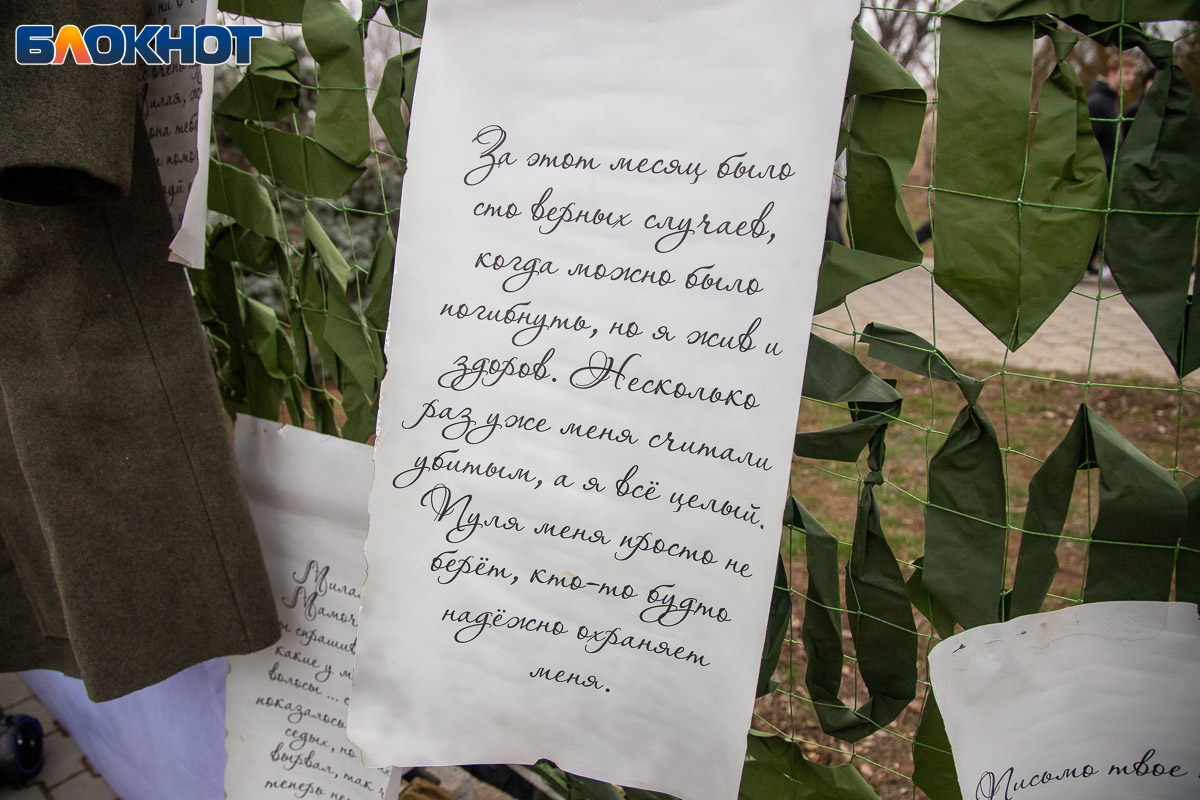 БЛОКНОТ
За этот месяц было
сто верных случаев,
когда можно было
погибнуть, но я жив и
здоров. Несколько
раз уже меня считали
убитым, а я всё целый.
Пуля меня просто не
берёт, кто-то будто
надёжно охраняет
меня.
какие у
волосы ...
показалось
седых, но
вырвал, так
теперь
Письмо твое